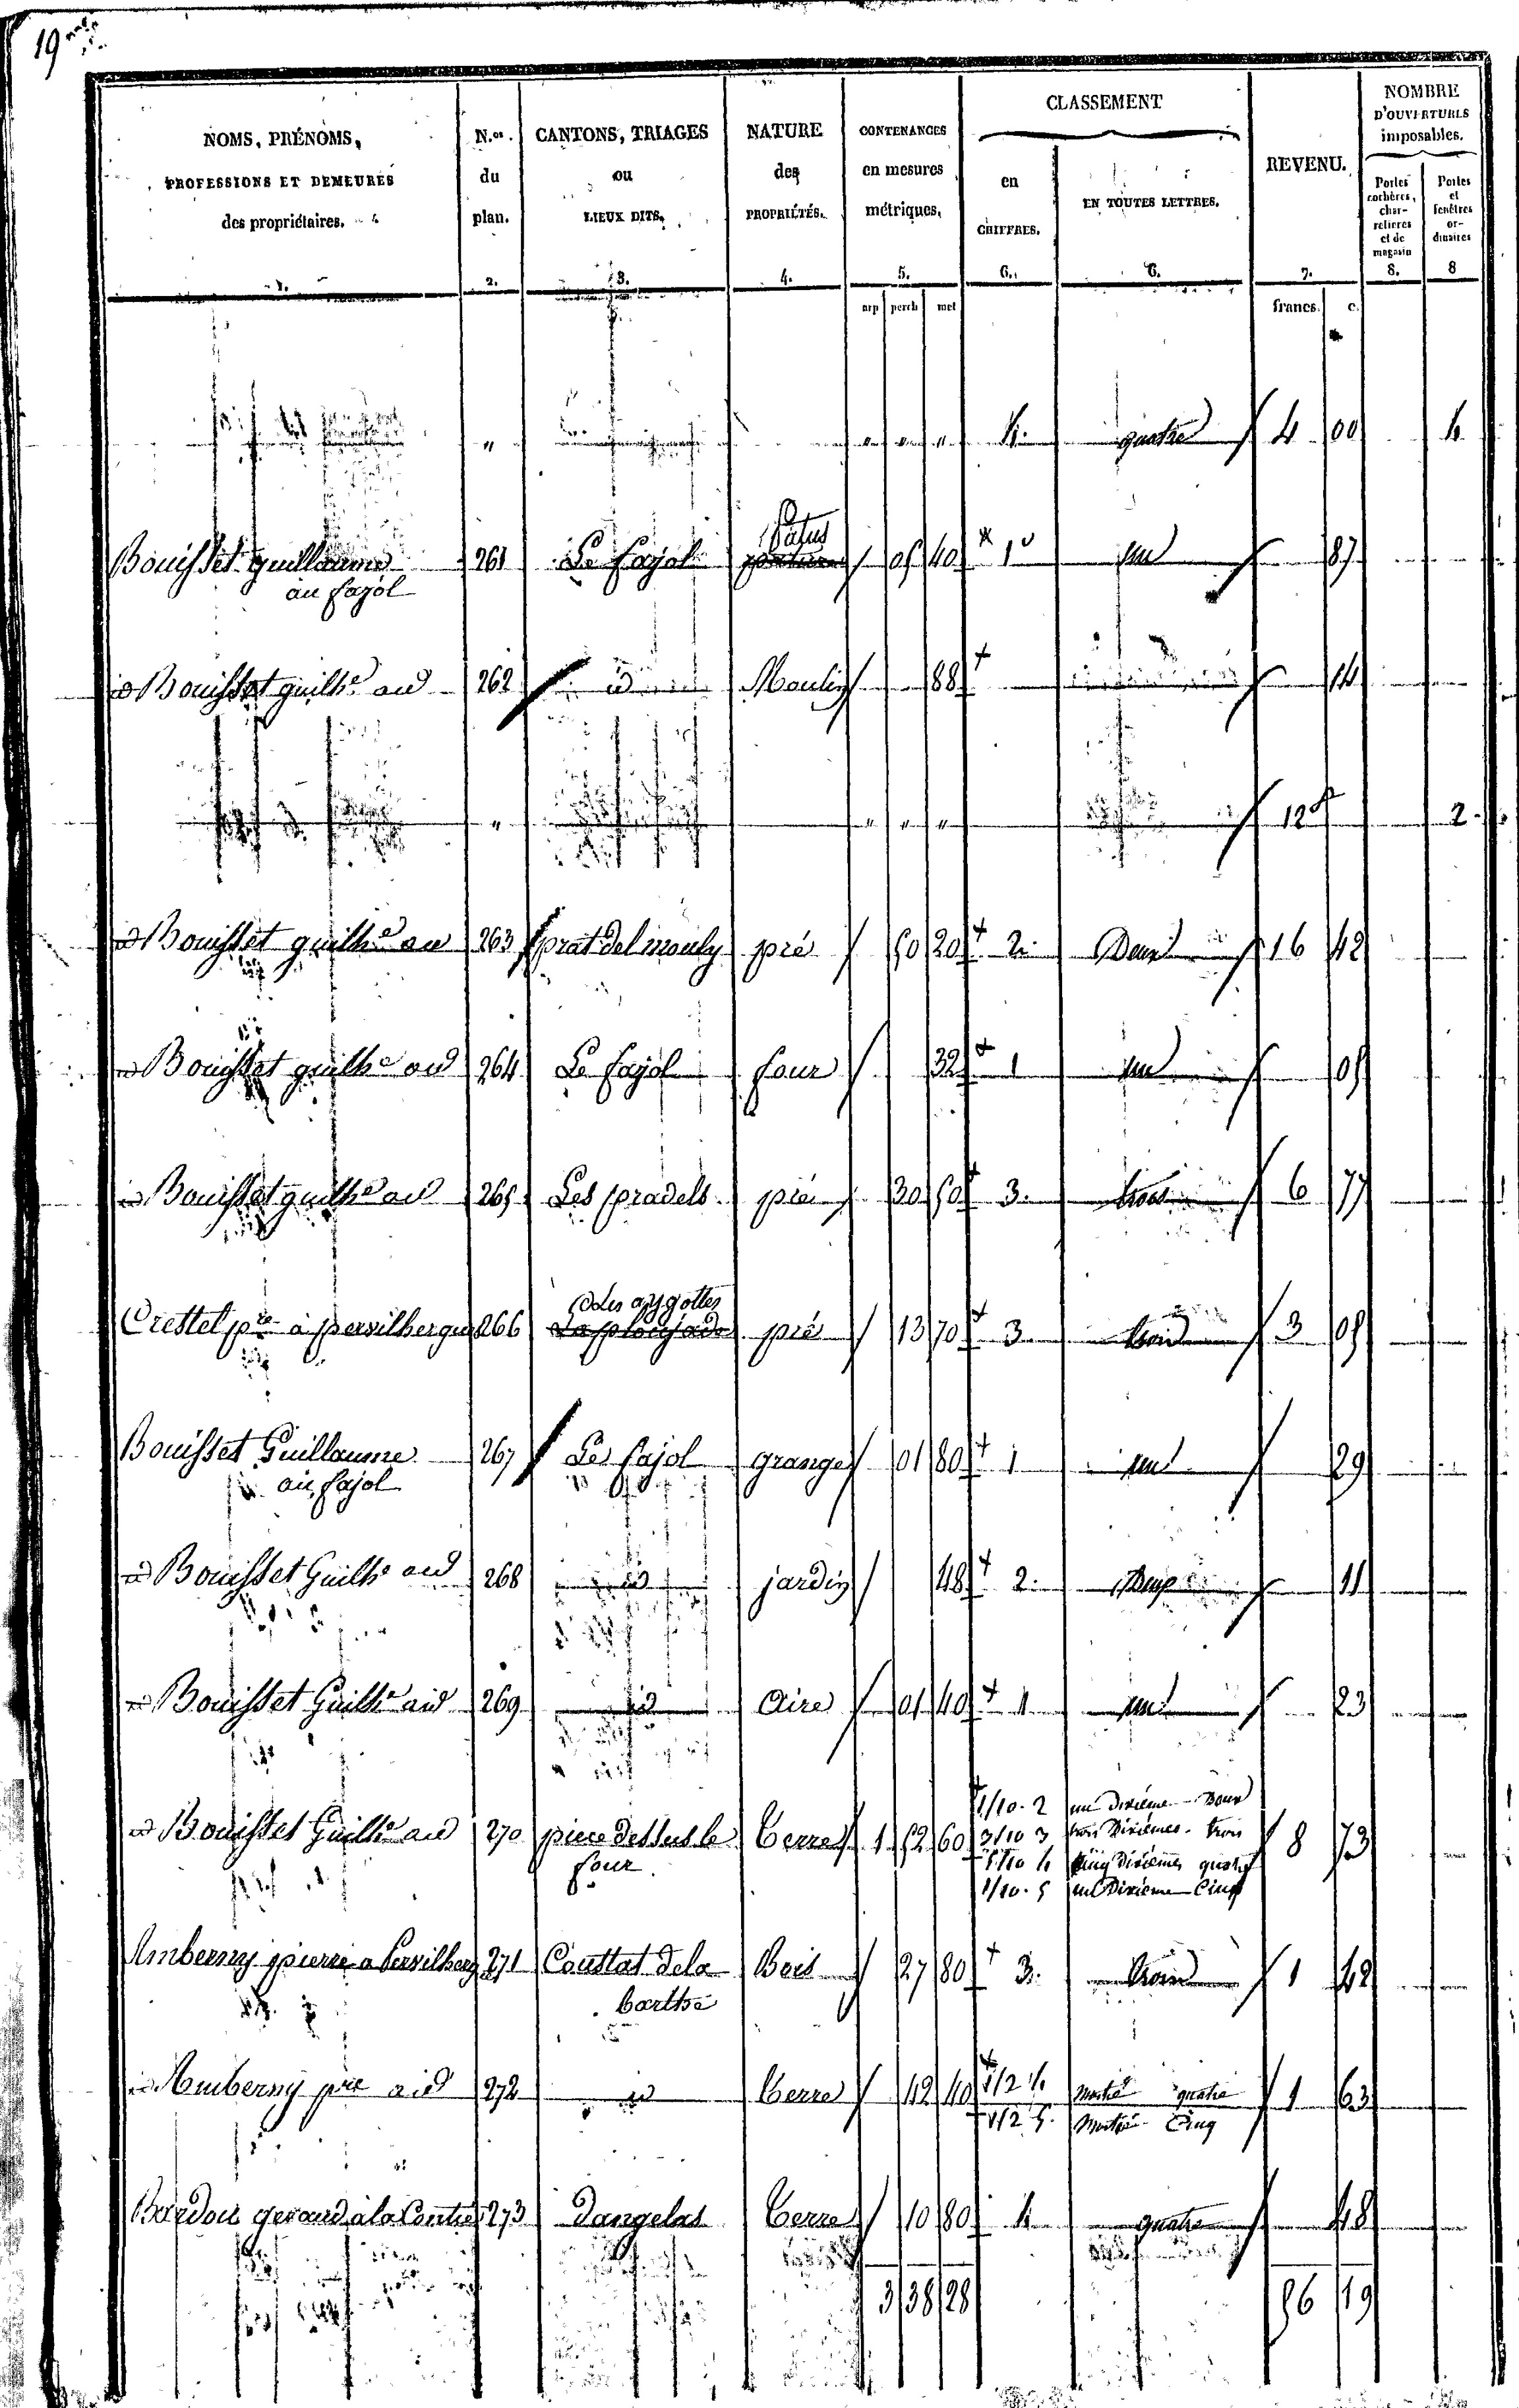 19
NOMS, PRÉNOMS, PROFESSIONS ET DEMEURES des propriétaires. 1.
N.os du plan. 2.
CANTONS, TRIAGES ou LIEUX DITS. 3.
NATURE des PROPRIÉTÉS. 4.
CONTENANCES en mesures métriques. 5.
CLASSEMENT
en CHIFFRES. 6.
EN TOUTES LETTRES. 6.
REVENU. 7.
NOMBRE D'OUVERTURES imposables.
Portes cochères, charretières et de magasin 8.
Portes et fenêtres ordinaires 8
arp perch met francs. c.
" " " " 4. quatre 4 00 4
Bouisset guillaume 261 Le fajol Patus 05 40 1 un 87
au fajol
id Bouisset guilhe aud 262 id Moulin 88 14
" " " " 12 2
id Bouisset guilhe aud 263 prat del mouly pré 50 20 2 Deux 16 42
id Bouisset guilhe aud 264 Le fajol four 32 1 un 05
id Bouisset guilhe aud 265 Les pradels pré 30 50 3. trois 6 77
Crestel pre à pervilhergues 266 Les aygottes pré 13 70 3 trois 3 05
Bouisset Guillaume 267 Le fajol grange 01 80 1 un 29
au fajol
id Bouisset Guilhe aud 268 id jardin 48 2. Deux 11
id Bouisset Guilhe aud 269 id Aire 01 40 1 un 23
id Bouisset Guilhe aud 270 piece dessus le four Terre 1 52 60 8 73
1/10. 2 un dixième Deux
3/10 3 trois Dixièmes. trois
5/10 4 Cinq Dixièmes quatre
1/10. 5 un Dixième Cinq
Amberny pierre a Pervilherg 271 Coustat dela barthe Bois 27 80 3. trois 1 42
id Amberny pre aud 272 id Terre 42 40 1 63
1/2 4 moitié quatre
1/2 5. moitié Cinq
geraud à la Contie 273 Dangelas Terre 10 80 4 quatre 48
3 38 28 56 19